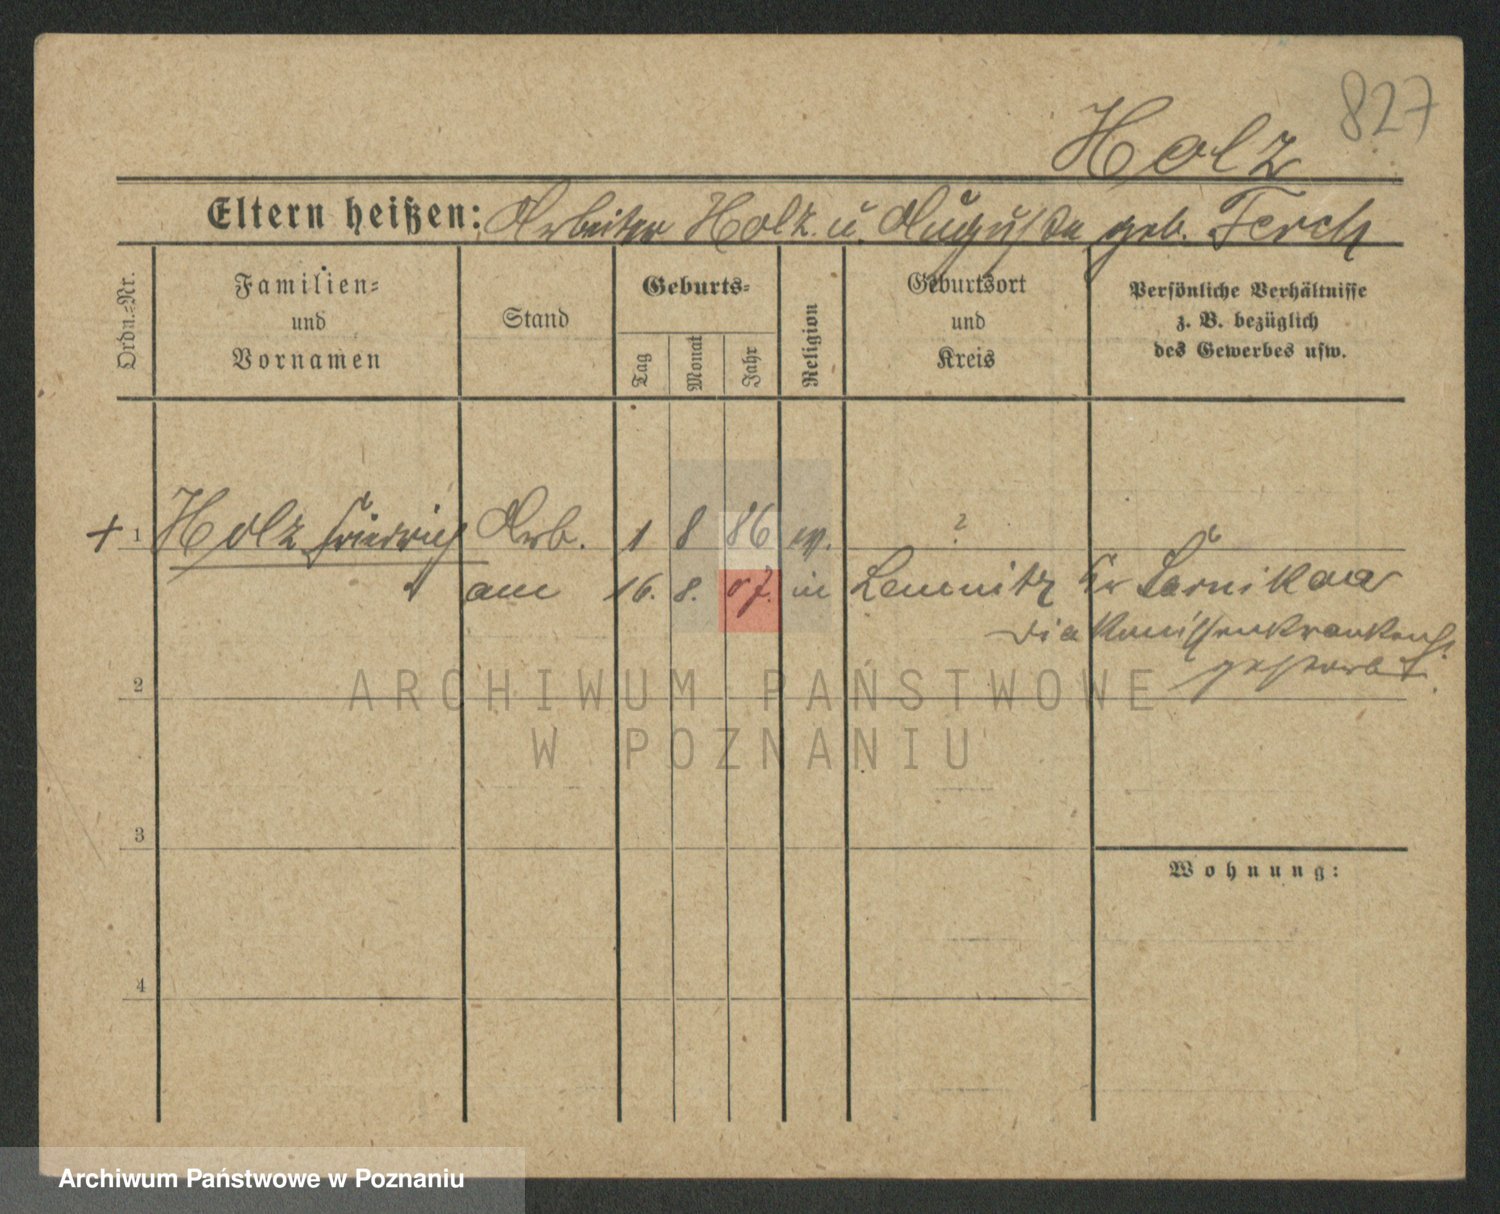 827
Holz
Eltern heißen: Arbeiter Holz u. Auguste geb. Ferch
Ordn.-Nr.
Familien-
und
Vornamen
Stand
Geburts-
Tag
Monat
Jahr
Religion
Geburtsort
und
Kreis
Persönliche Verhältnisse
z. B. bezüglich
des Gewerbes usw.
+ 1 Holz Friedrich Arb. 1 8 86 ev. ?
am 16. 8. 07. in Kr Czarnikau
Diakonissenkrankenh.
2
ARCHIWUM PAŃSTWOWE
W POZNANIU
3
Wohnung:
4
Archiwum Państwowe w Poznaniu